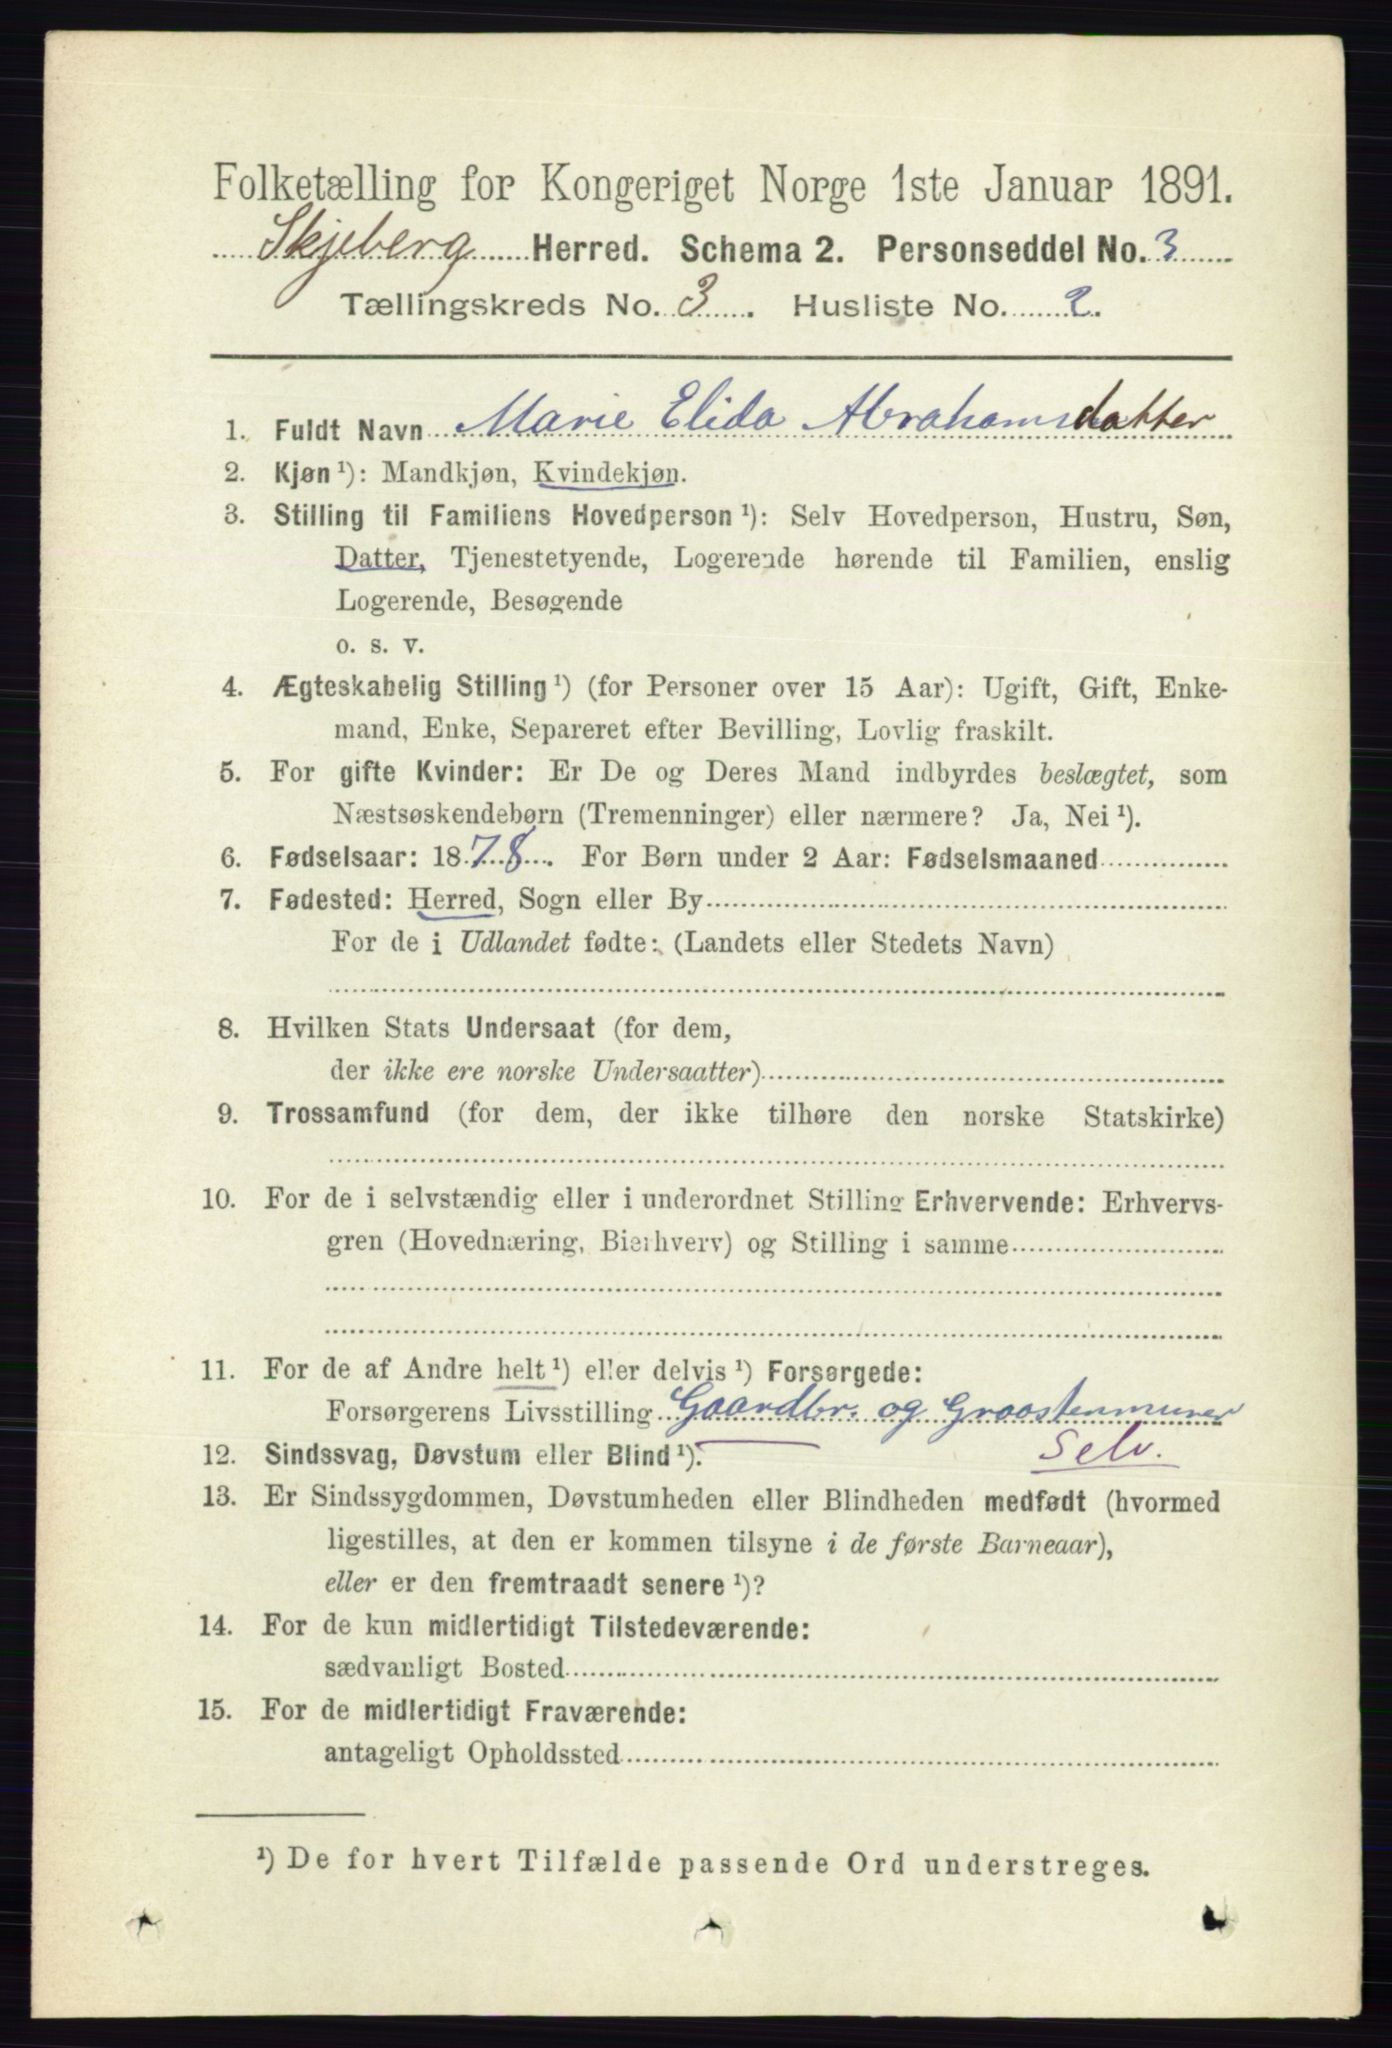 Folketælling for Kongeriget Norge 1ste Januar 1891.
Skjeberg Herred. Schema 2. Personseddel No. 3
Tællingskreds No. 3. Husliste No. 2.
1. Fuldt Navn Marie Elida Abrahamsdatter
2. Kjøn ¹): Mandkjøn, Kvindekjøn.
3. Stilling til Familiens Hovedperson ¹): Selv Hovedperson, Hustru, Søn,
Datter, Tjenestetyende, Logerende hørende til Familien, enslig
Logerende, Besøgende
o. s. v.
4. Ægteskabelig Stilling ¹) (for Personer over 15 Aar): Ugift, Gift, Enke-
mand, Enke, Separeret efter Bevilling, Lovlig fraskilt.
5. For gifte Kvinder: Er De og Deres Mand indbyrdes beslægtet, som
Næstsøskendebørn (Tremenninger) eller nærmere? Ja, Nei ¹).
6. Fødselsaar: 1878. For Børn under 2 Aar: Fødselsmaaned
7. Fødested: Herred, Sogn eller By
For de i Udlandet fødte: (Landets eller Stedets Navn)
8. Hvilken Stats Undersaat (for dem,
der ikke ere norske Undersaatter)
9. Trossamfund (for dem, der ikke tilhøre den norske Statskirke)
10. For de i selvstændig eller i underordnet Stilling Erhvervende: Erhvervs-
gren (Hovednæring, Bierhverv) og Stilling i samme
11. For de af Andre helt ¹) eller delvis ¹) Forsørgede:
Forsørgerens Livsstilling Gaardbr. og Graastenmurer
12. Sindssvag, Døvstum eller Blind ¹). Selv.
13. Er Sindssygdommen, Døvstumheden eller Blindheden medfødt (hvormed
ligestilles, at den er kommen tilsyne i de første Barneaar),
eller er den fremtraadt senere ¹)?
14. For de kun midlertidigt Tilstedeværende:
sædvanligt Bosted
15. For de midlertidigt Fraværende:
antageligt Opholdssted
¹) De for hvert Tilfælde passende Ord understreges.